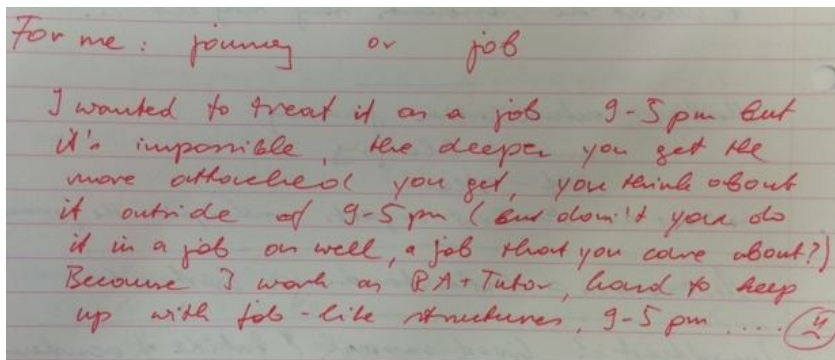 For me: journey or job
I wanted to treat it as a job 9-5 pm but
it's impossible, the deeper you get the
more attached you get, you think about
it outside of 9-5 pm (but don't you do
it in a job as well, a job that you care about?)
Because I work as RA + Tutor, hard to keep
up with job-like structures, 9-5 pm ....